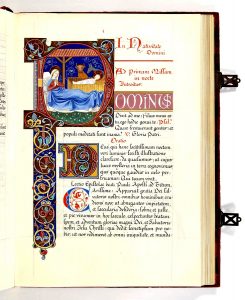 In Nativitate
Domini
Ad Primam Missam
in nocte
Introitus
DOMINUS
dixit ad me: Filius meus es
tu, ego hodie genui te. Psl.
Quare fremuerunt gentes: et
populi meditati sunt inania? V. Gloria Patri.
Oratio
DEUS qui hanc sacratissimam noctem
veri luminis fecisti illustratione
clarescere: da quaesumus; ut cujus
lucis mysteria in terra cognovimus
ejus quoque gaudiis in caelo per-
fruamur. Qui tecum vivit.
Lectio Epistolae beati Pauli Apostoli ad Titum.
Carissime: Apparuit gratia Dei Sal-
vatoris nostri omnibus hominibus eru-
diens nos, ut abnegantes impietatem et
saecularia desideria, sobrie et juste
et pie vivamus in hoc saeculo, exspectantes beatam
spem, et adventum gloriae magni Dei et Salvatoris
nostri Jesu Christi: qui dedit semetipsum pro no-
bis: ut nos redimeret ab omni iniquitate, et munda-